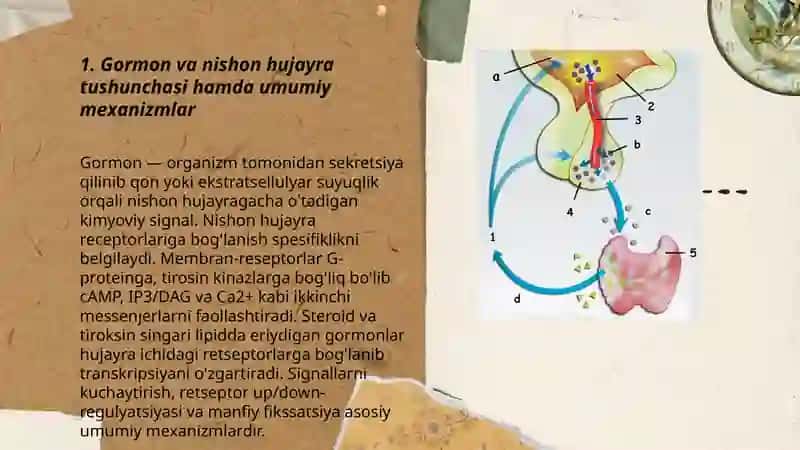 1. Gormon va nishon hujayra
tushunchasi hamda umumiy
mexanizmlar
Gormon — organizm tomonidan sekretsiya
qilinib qon yoki ekstratsellulyar suyuqlik
orqali nishon hujayragacha o'tadigan
kimyoviy signal. Nishon hujayra
receptorlariga bog'lanish spesifiklikni
belgilaydi. Membran-reseptorlar G-
proteinga, tirosin kinazlarga bog'liq bo'lib
cAMP, IP3/DAG va Ca2+ kabi ikkinchi
messenjerlarni faollashtiradi. Steroid va
tiroksin singari lipidda eriydigan gormonlar
hujayra ichidagi retseptorlarga bog'lanib
transkripsiyani o'zgartiradi. Signallarni
kuchaytirish, retseptor up/down-
regulyatsiyasi va manfiy fikssatsiya asosiy
umumiy mexanizmlardir.
a
2
3
b
4
c
1
5
d